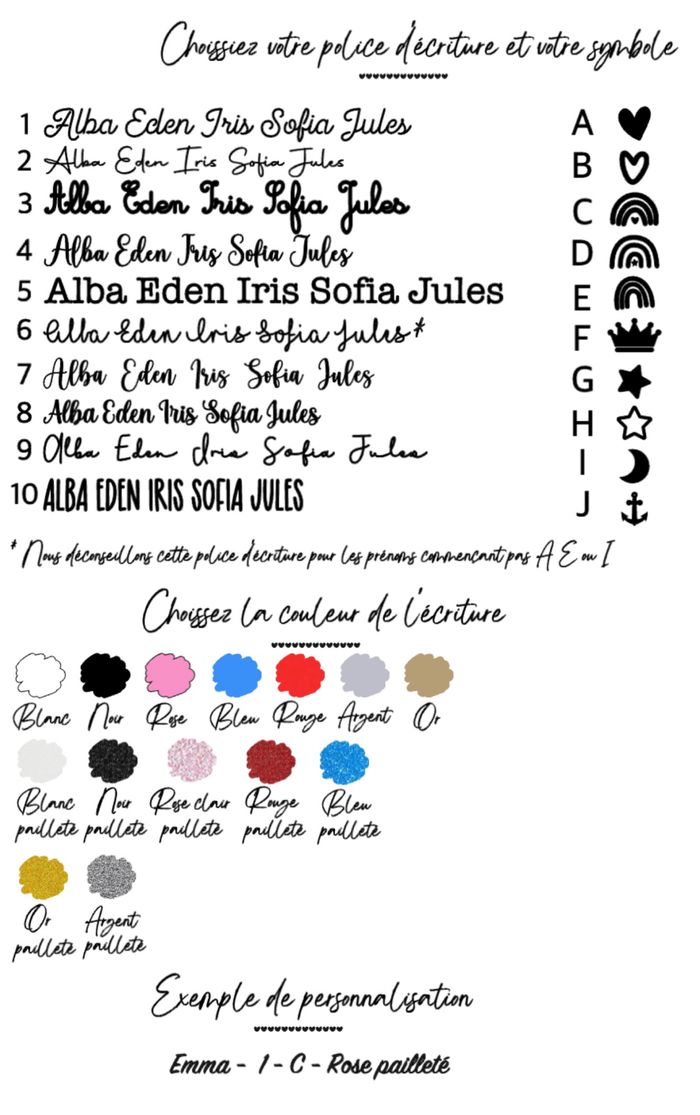 Choissiez votre police d'écriture et votre symbole
1 Alba Eden Iris Sofia Jules
A
2 Alba Eden Iris Sofia Jules
B
3 Alba Eden Iris Sofia Jules
C
4 Alba Eden Iris Sofia Jules
D
5 Alba Eden Iris Sofia Jules
E
6 Alba Eden Iris Sofia Jules*
F
7 Alba Eden Iris Sofia Jules
G
8 Alba Eden Iris Sofia Jules
H
9 Alba Eden Iris Sofia Jules
I
10 ALBA EDEN IRIS SOFIA JULES
J
* Nous déconseillons cette police d'écriture pour les prénoms commencant pas A E ou I
Choissez la couleur de l'écriture
Blanc Noir Rose Bleu Rouge Argent Or
Blanc Noir Rose clair Rouge Bleu
pailleté pailleté pailleté pailleté pailleté
Or Argent
pailleté pailleté
Exemple de personnalisation
Emma - 1 - C - Rose pailleté